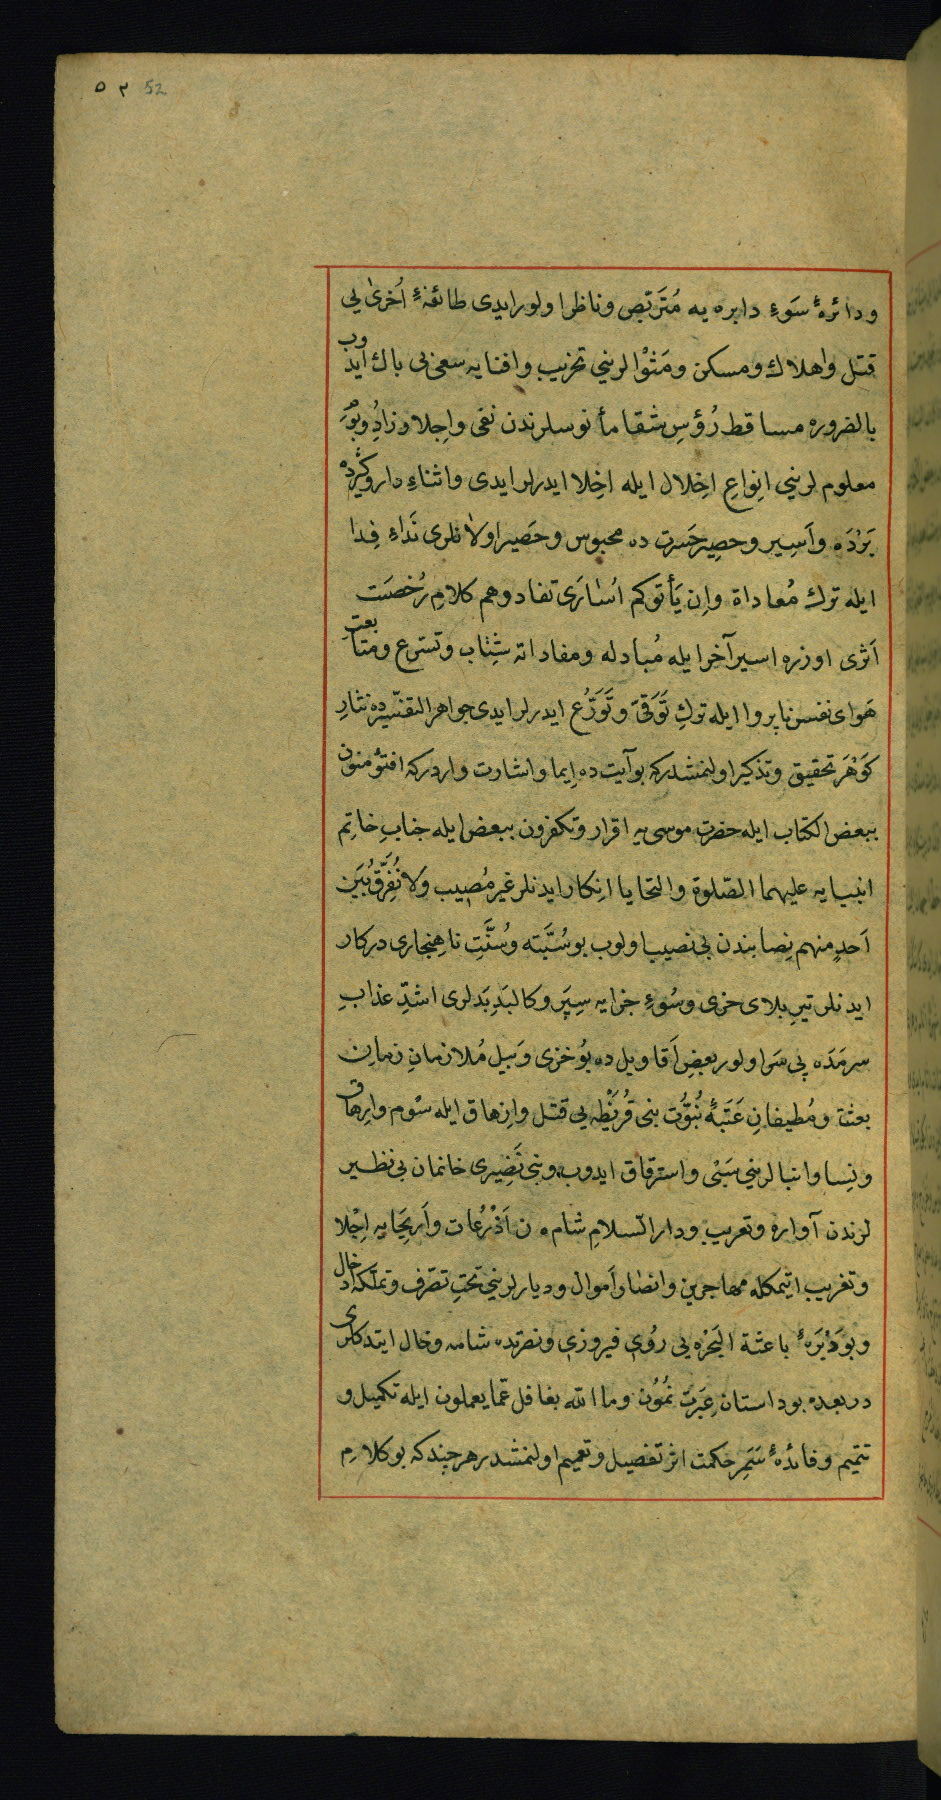 ٥٢ 52
ودائرهٔ سَوءِ دابره یه مُتَرَبّص وناظرا ولورایدی طائفهٔ اُخریٰ یی
قتل واهلاك ومسكن ومَثوٰالرینی تخریب وافنایه سعئ بی باك ایدوب
بالضروره مساقط رُؤسِ شقامأنوسلرندن نفی واجلا وزادُ
معلوم لرینی انواعِ اخِلال ایله اخِلا ایدرلر ایدی واثناءِ داروكیرده
بَرْدَه واَسِیر وحصِیرحَسرت ده محبوس وحَصیر اولانلری نَداءِ فِدا
ایله ترك مُعاداة وإن یَأتوكم اُسٰارَی تفادوهم كلامِ رُخصَت
اَثری اوزره اسیرآخر ایله مُبادله ومفاداته شِتٰاب وتسرع ومتابعتِ
هَوای نفسِ ناپروا ایله تركِ تَوَقّی وتَوَرُّع ایدرلر ایدی جواهر التفسیرده نثارِ
كَوْهَرِ تحقیق وتذكیر اولنمشدركه بوآیت ده اِیما واشارت واردركه افتؤمنون
ببعض الكتاب ایله حضرت موسی یه اقرار وتكفرون ببعض ایله جنابِ خاتِم
انبیایه علیهما الصّلوة والتحایا انِكار ایدنلر غیر مُصِیب ولا نُفَرِّقُ بَیَن
اَحدٍ منهم نِصابندن بی نصیب اولوب بوسُبَّته وسُنَّتِ ناهِنجاری دركار
ایدنلر تیرِ بلای خزی وسُوءِ جزایه سِپَر وكالبَدِ بَدلری اشدِّ عذابِ
سرمَدَه پی سَر اولور بعضِ اَقاویل ده بُوخزی وَبیل مُلازمانِ زمانِ
بعثت ومُطیفانِ عَتَبهٔ نُبوُّت بنی قُرَیْظه یی قتل وازهاق ایله سَوم وارهاق
ونِسا وابنالرینی سَبْی واسترقاق ایدوب وبنی نَضِیری خانمان بی نظیر
لرندن آواره وتعریب ودار السلامِ شام ه ن اَذْرُعات واَریحَایه اِجْلا
وتغریب ایتمكله مهاجرین وانصار اَموال ودیارلرینی تحتِ تصرّف وتملّكه ادخال
وبودَبْرَهٔ باعثة البَحْره یی رُوی فیروزی ونصرتده شامه وخال ایتدكلری
دربعده بوداستانِ عِبَرت نمُوُن وما الله بغافل عمّا یعملون ایله تكمیل و
تتمیم وفائدهٔ سَمَرِ حكمت اثر تفصیل وتعمیم اولنمشدر هرچندكه بوكلامِ